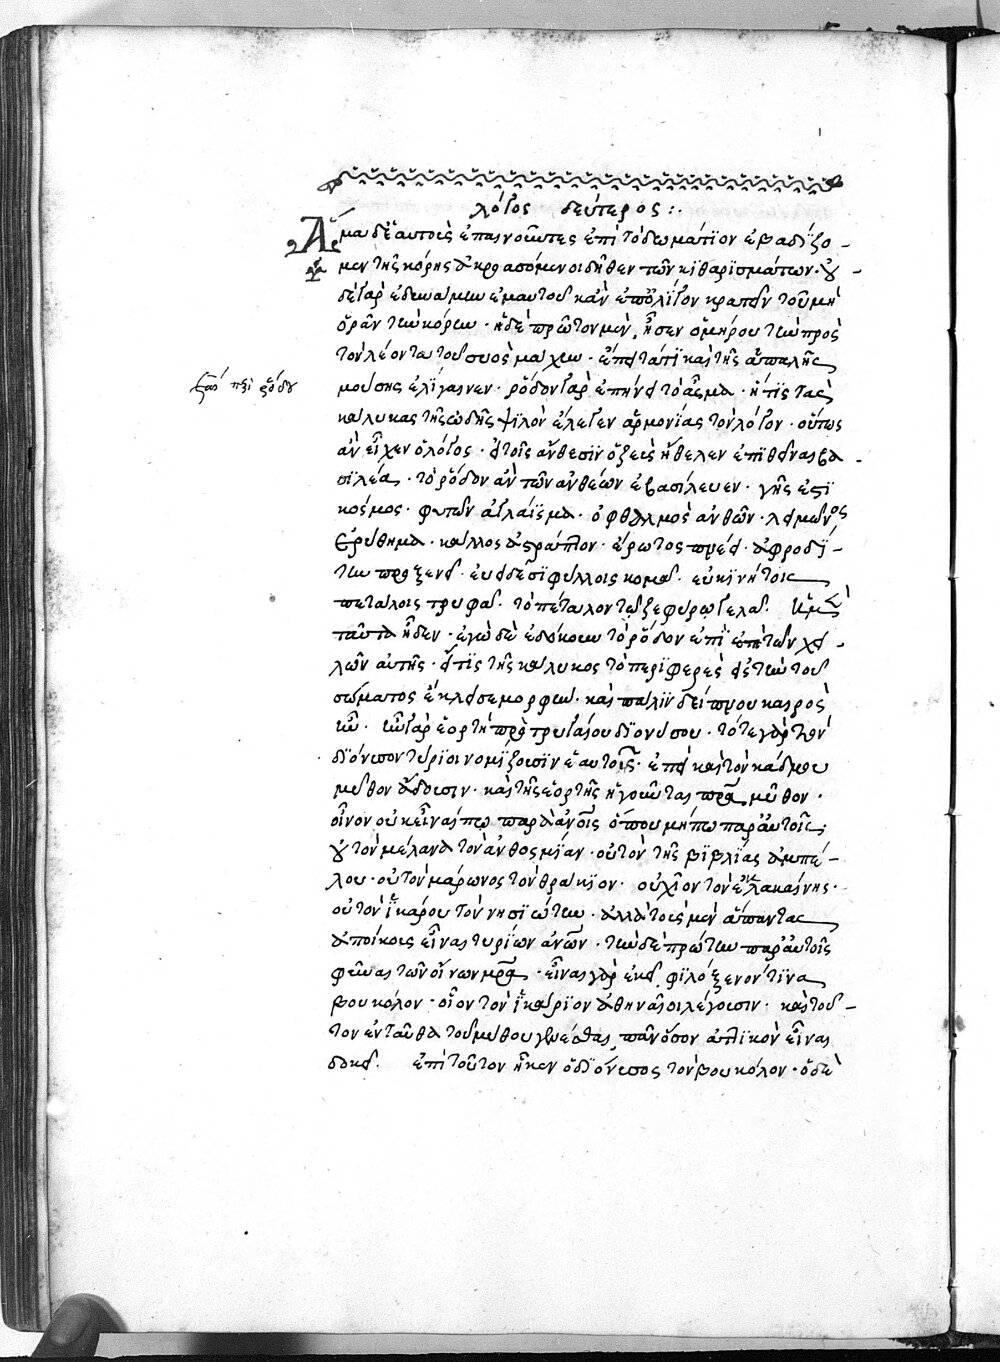 λόγος δεύτερος :.
Ἅμα δὲ αὐτοὺς ἐπαινοῦντες ἐπὶ τὸ δωμάτϊον ἐβαδϊζο-
μεν τῆς κόρης ἀκροασόμενοι δῆθεν τῶν κϊθαρϊσμάτων· οὐ-
δὲ γὰρ ἐδυνάμην ἐμαυτοῦ κἂν ἐπ' ὀλϊγον κρατεῖν τοῦ μὴ
ὁρᾶν τὴν κόρην· ἡ δὲ πρῶτον μὲν, ἦσεν ὁμήρου τὴν πρὸς
τὸν λέοντα τοῦ συὸς μάχην· ἔπειτά τϊ καὶ τῆς ἁπαλῆς
ἔπαι περὶ ῥόδου
μούσης ἐλίγαινεν· ῥόδον γὰρ ἐπήνει τὸ ἆσμα· ἤ τϊς τὰς
καλυκας τῆς ὠδῆς ψϊλὸν ἔλεγεν ἁρμονίας τὸν λόγον· οὕτως
ἂν εἶχεν ὁ λόγος· εἰ τοῖς ἄνθεσϊν ὁ ζεὺς ἤθελεν ἐπϊθεῖναι βα-
σϊλέα· τὸ ῥόδον ἂν τῶν ἀνθέων ἐβασίλευεν· γῆς ἐστϊ
κόσμος· φυτῶν ἀγλάϊσμα· ὀφθαλμὸς ἀνθῶν· λειμῶνος
ἐρύθημα· κάλλος ἀστράπτον· ἔρωτος πνέει· ἀφροδϊ-
την προξενεῖ· εὐώδεσϊ φύλλοις κομᾶ· εὐκϊνήτοις
πετάλοις τρυφᾶ· τὸ πέταλον τῶ ζεφύρω γελᾶ. ἡ μὲν
ταῦτα ἦδεν· ἐγὼ δὲ ἐδόκουν τὸ ῥόδον ἐπὶ τῶν χει-
λῶν αὐτῆς· εἴ τϊς τῆς κάλυκος τὸ περϊφερὲς εἰς τὴν τοῦ
σώματος ἔκλεισε μορφην. καὶ πάλϊν δείπνου καιρὸς
ἦν· ἦν γὰρ ἑορτὴ προτρυγαίου δϊονύσου· τότε γὰρ τὸν
δϊόνυσον τύρϊοι νομϊζουσϊν ἑαυτοῖς· ἐπεὶ καὶ τὸν κάδμου
μῦθον ἄδουσιν· καὶ τῆς ἑορτῆς ἡγοῦνται πατέρα μῦθον·
οἶνον οὐκ εἶναί πω παρὰ ἀνοῖς ὅπου μήπω παρ' αὐτοῖς·
οὐ τὸν μέλανα τὸν ἀνθοσμϊαν· οὐ τὸν τῆς βϊβλϊας ἀμπέ-
λου· οὐ τὸν μάρωνος τὸν θράκϊον· οὐ χῖον τὸν ἐκ λακαίνης·
οὐ τὸν ἰκάρου τὸν νησϊώτην· ἀλλὰ τοὺς μὲν ἅπαντας
ἀποίκους εἶναι τυρϊων ἀνῶν· τὴν δὲ πρώτην παρ' αὐτοῖς
φῦναι τῶν οἴνων μρα· εἶναι γὰρ ἐκεῖ φϊλόξενον τϊνα
βουκόλον· οἷον τὸν ἰκάρϊον ἀθηναῖοι λέγουσιν· καὶ τοῦ-
τον ἐνταῦθα τοῦ μύθου γενέσθαι, πατέρ' ὅσον ἀττϊκὸν εἶναι
δοκεῖ. ἐπὶ τοῦτον ἧκεν ὁ δϊόνυσος τὸν βουκόλον· ὁ δὲ